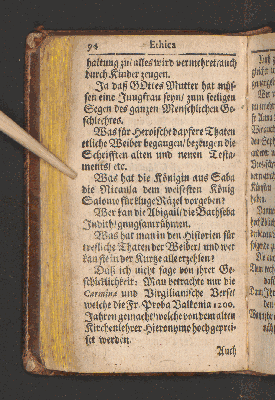 94 Ethica
haltung zu/ alles wird vermehret/auch
durch Kinder zeugen.
Ja daß GOttes Mutter hat müs-
sen eine Jungfrau seyn/ zum seeligen
Segen des ganzen Menschlichen Ge-
schlechtes.
Was für Heroische dapfere Thaten
etliche Weiber begangen/ bezeugen die
Schrifften alten und neuen Testa-
ments/ etc.
Was hat die Königin aus Saba
die Nicausa dem weisesten König
Salomo für kluge Räzel vorgeben?
Wer kan die Abigail/ die Bathseba
Judith/ gnugsam rühmen.
Was hat man in den Historien für
trefliche Thaten der Weiber/ und wer
kan sie in der Kurtze alle erzehlen?
Daß ich nicht sage von ihrer Ge-
schicklichkeit: Man betrachte nur die
Carmina und Virgilianische Verse/
welche die Fr. Proba Valkonia 1200.
Jahren gemacht/ welche von dem alten
Kirchenlehrer Hieronymo hoch geprei-
set werden.
Auch